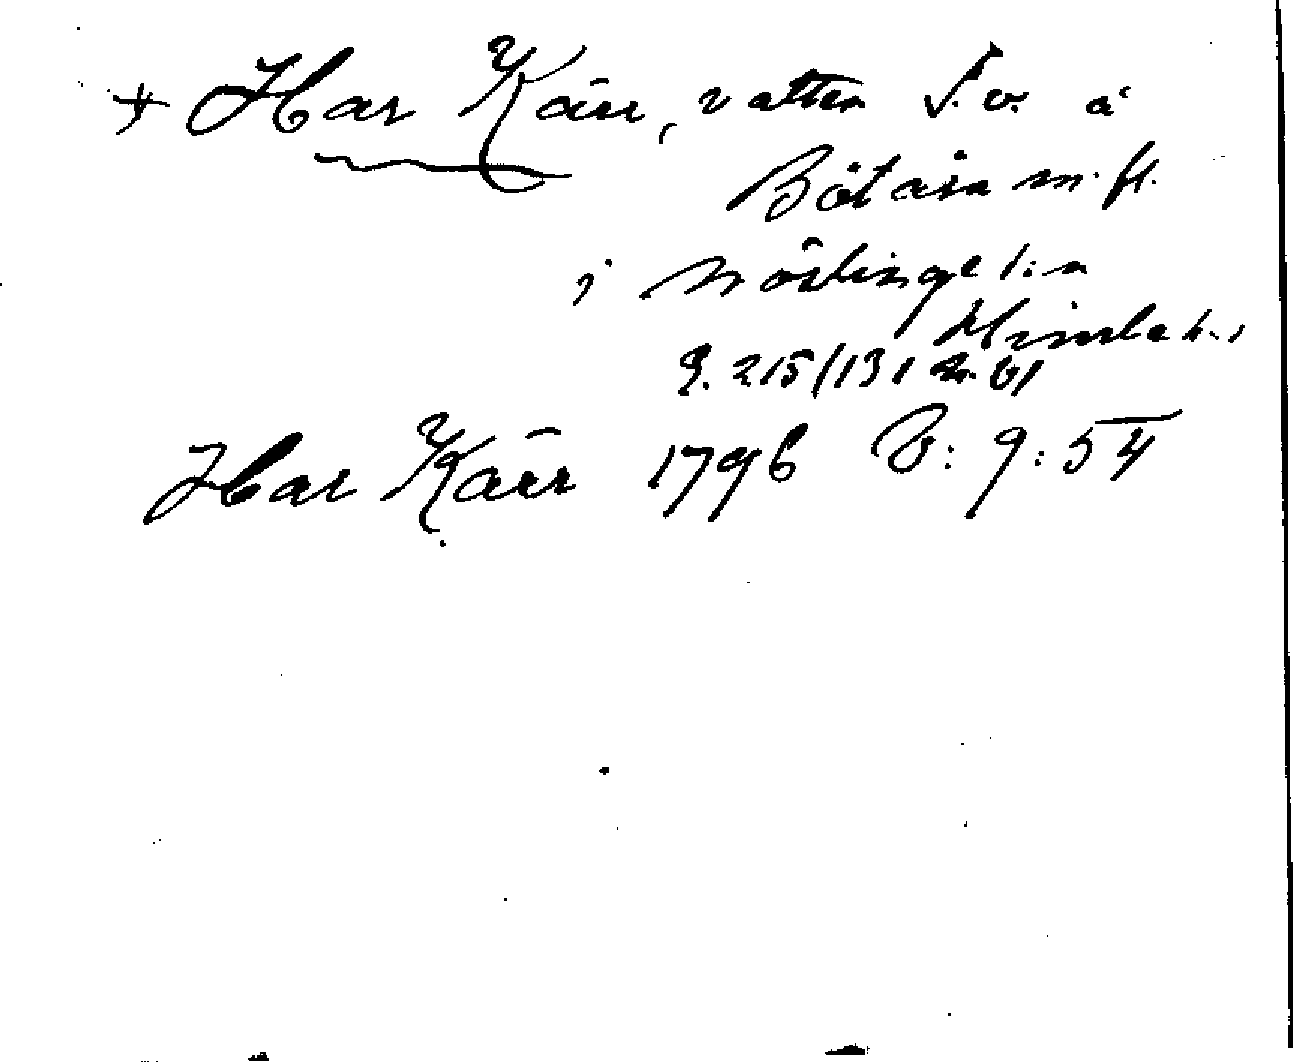 + Har Kärr, vatten S.v. å
Bötåsa m. fl.
i Növlinge s:n
Himle h.,
J. 215/131 m. 61
Har Kärr 1796 B: 9: 54